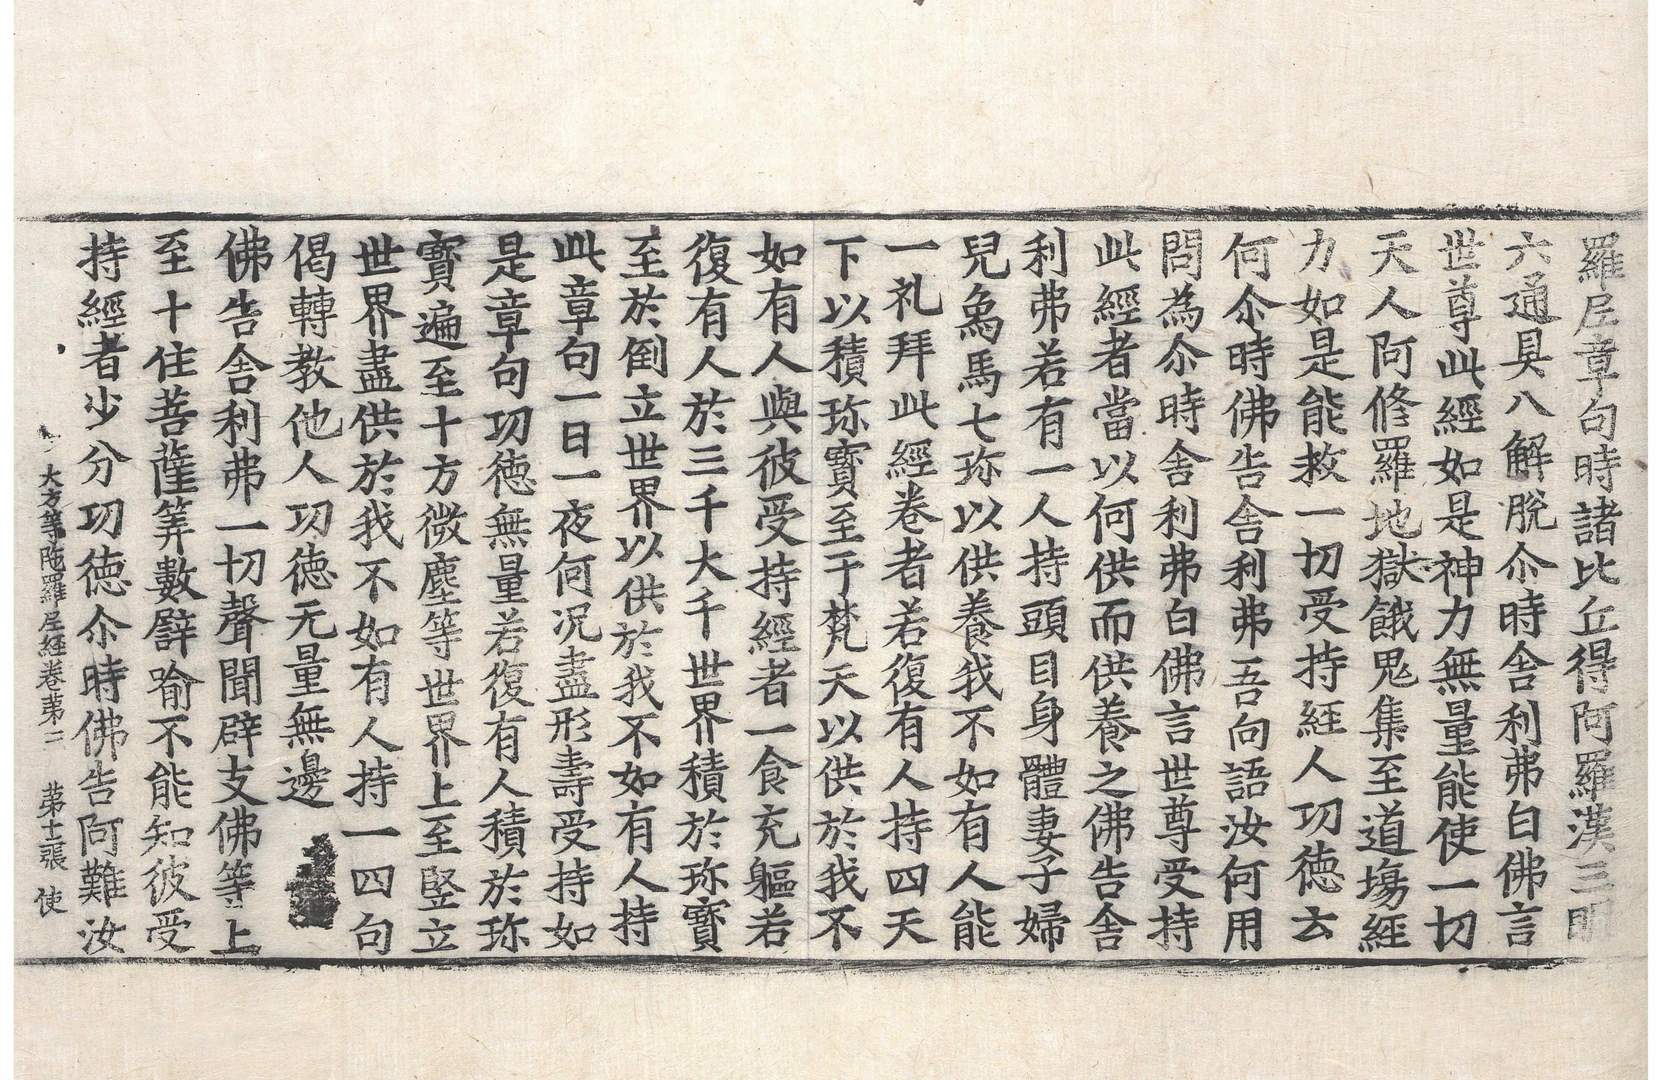 羅尼章句時諸比丘得阿羅漢三明
六通具八解脫尒時舎利弗白佛言
世尊此經如是神力無量能使一切
天人阿修羅地獄餓鬼集至道場經
力如是能救一切受持經人功德去
何尒時佛告舎利弗吾向語汝何用
問為尒時舎利弗白佛言世尊受持
此經者當以何供而供養之佛告舎
利弗若有一人持頭目身體妻子婦
兒象馬七珎以供養我不如有人能
一礼拜此經卷者若復有人持四天
下以積珎寳至于梵天以供於我不
如有人與彼受持經者一食充軀若
復有人於三千大千世界積於珎寳
至於倒立世界以供於我不如有人持
此章句一日一夜何況盡形壽受持如
是章句功德無量若復有人積於珎
寳遍至十方微塵等世界上至竪立
世界盡供於我不如有人持一四句
偈轉教他人功德无量無邊
佛告舎利弗一切聲聞辟支佛等上
至十住菩薩筭數譬喻不能知彼受
持經者少分功德尒時佛告阿難汝
大方等陁羅尼經卷苐二 苐十二張 使